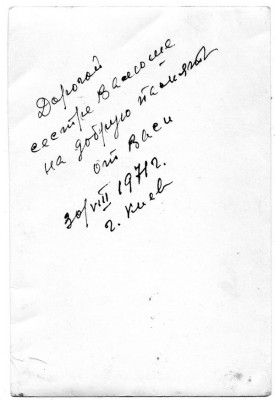 Дорогой
сестре Валюше
на добрую память
от Васи
30/VIII 1971г.
г. Киев